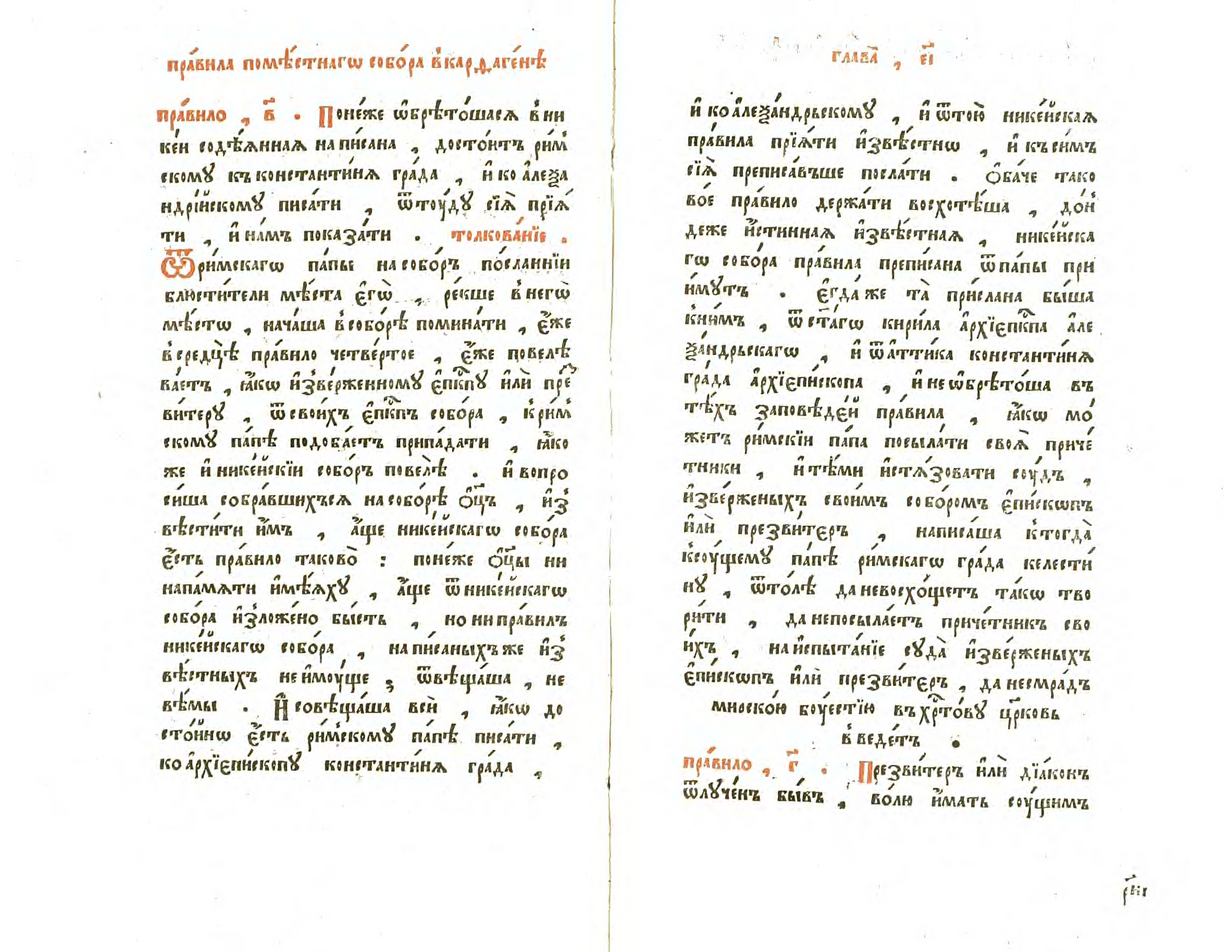 пра́вила помѣ́стнагѡ собо́ра в̾карѳаге́нѣ
пра́вило , в҃ . Поне́же ѡ҆брѣто́шася в̾ни
ке́и содѣ́янная написана , досто́итъ ри́м
скому къконстанти́ня гра́да , и҆ ко а҆леѯа
ндрі́искому писа́ти , ѿтоу́ду сїя̀ прїя́
ти , и҆ на́мъ показа́ти . толкова́нїе .
Ѿри́мскагѡ па́пы насобо́ръ по́сланнїи
блюсти́тели мѣ́ста є҆гѡ̀ , ре́кше в̾негѡ̀
мѣ́стѡ , нача́ша в̾собо́рѣ помина́ти , є҆́же
в̾среднѣ пра́вило четве́ртое , є҆́же повелѣ
ва́етъ , ꙗ҆́кѡ и҆зве́рженному є҆пⷭ҇кпу и҆лѝ пре
ви́теру , ѿсвои́хъ є҆пⷭ҇кпъ собо́ра , к̾ри́м
скому па́пѣ подоба́етъ припа́дати , ꙗ҆́ко
же и҆ нике́искїи собо́ръ повелѣ̀ . и҆ вопро
си́ша собра́вшихъся насобо́рѣ ѻ҆ц҃ъ , и҆з̾
вѣсти́ти и҆̀мъ , а҆́ще нике́искагѡ собо́ра
є҆́сть пра́вило таково̀ : поне́же ѻ҆ц҃ы ни
напа́мяти и҆мѣ́яху , а҆́ще ѿнике́искагѡ
собо́ра и҆зло́жено бы́сть , но ни пра́вилъ
нике́искагѡ собо́ра , напи́саныхъже и҆з̾
вѣ́стныхъ неи҆мо́уще ; ѿвѣща́ша , не
вѣ́мы . И҆ совѣща́ша всѝ , ꙗ҆́кѡ до
сто́инѡ є҆́сть ри́мскому па́пѣ писа́ти ,
ко а҆рхїепи́скопу константи́ня гра́да ,
глава̀ , є҃і
и҆ ко а҆леѯа́ндрьскому , и҆ ѿто́ю нике́иская
пра́вила прїя́ти и҆звѣ́стнѡ , и҆ къси́мъ
сїя̀ преписа́въше посла́ти . ѻ҆ба́че тако
во́е пра́вило держа́ти восхотѣ́ша , до́н
деже и҆́стинная и҆звѣ́стная , нике́иска
гѡ собо́ра пра́вила преписана ѿпа́пы при
и́мутъ . є҆гда́же та̀ при́слана бы́ша
к̾ни́мъ , ѿст҃а́гѡ кири́ла а҆рхїепⷭ҇кпа але
ѯа́ндрьскагѡ , и҆ ѿа҆́ттика константи́ня
гра́да а҆рхїепи́скопа , и҆ неѡ҆брѣто́ша въ
тѣ́хъ за́повѣдей пра́вила , ꙗ҆́кѡ мо́
жетъ ри́мскїи па́па посыла́ти своя̀ приче́
тники , и҆ тѣ́ми и҆стяѕовати соу́дъ ,
и҆зве́рженыхъ свои́мъ собо́ромъ є҆пи́скѡпъ
и҆лѝ презви́теръ , написа́ша к̾тогда̀
к̾соу́щему па́пѣ ри́мскагѡ гра́да келести́
ну , ѿто́лѣ даневосхо́щетъ та́кѡ тво
ри́ти , данепосыла́етъ приче́тникъ сво
и́хъ , наи҆спыта́нїе суда̀ и҆зве́рженыхъ
є҆пи́скѡпъ и҆лѝ презви́теръ , данесмра́дъ
мирско́ю боу́естїю въ хрⷭ҇то́ву цр҃ковь
в̾веде́тъ .
пра́вило , г҃ . Презви́теръ и҆лѝ дїа́конъ
ѿлуче́нъ бы́въ , во́лю и҆́мать соу́щимъ